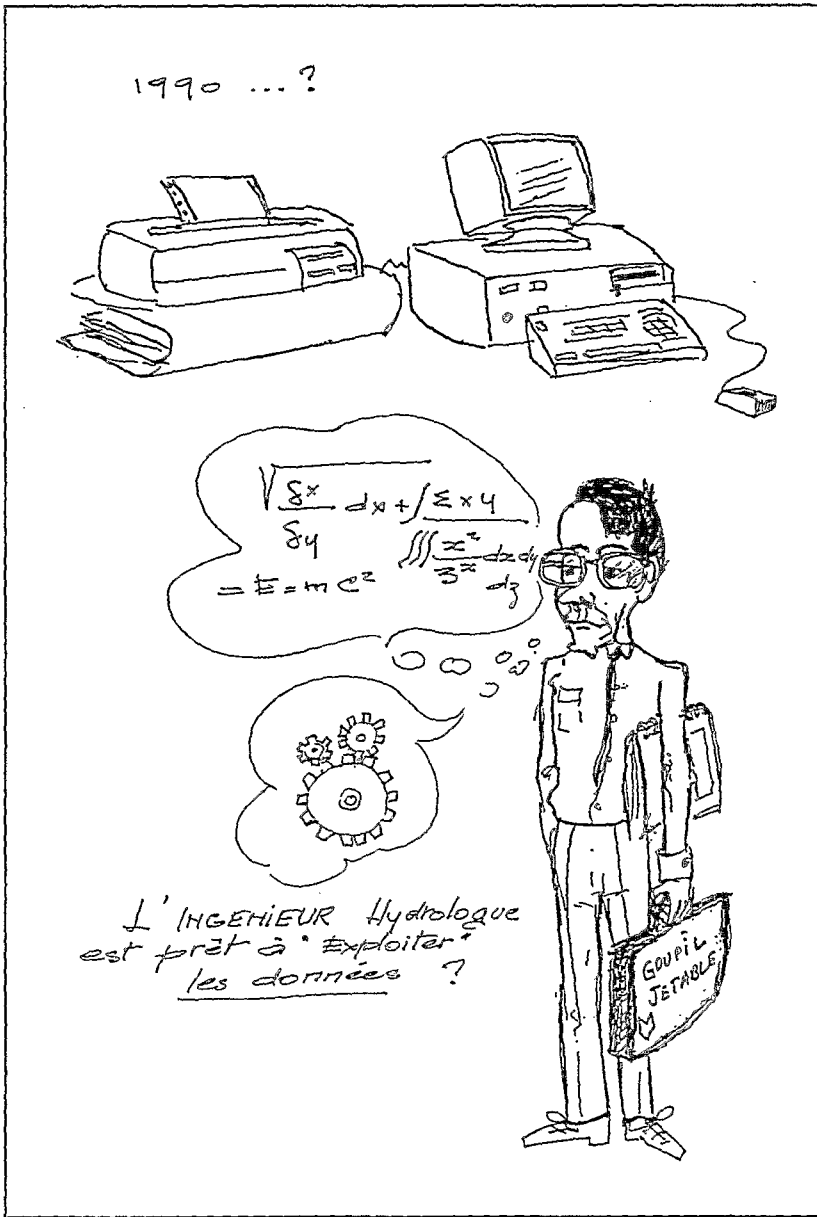 1990 ...?
√ δx/δy dx + ∫ Σ x y / ∭ x²/3^x dx dy
dz
= E = m c²
L' INGENIEUR Hydrologue
est prêt à "Exploiter"
les données ?
GOUPIL
JETABLE